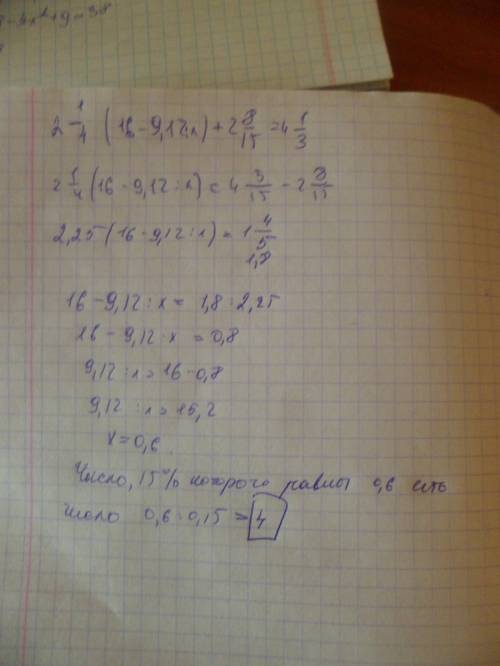 -4x²+9=38
2 1/4 (16-9,12:x)+2 8/15=4 1/3
2 1/4 (16-9,12:x)=4 5/15-2 8/15
2,25(16-9,12:x)=1 4/5
1,8
16-9,12:x=1,8:2,25
16-9,12:x=0,8
9,12:x=16-0,8
9,12:x=15,2
x=0,6.
Число, 15% которого равны 0,6 есть
число 0,6:0,15=4